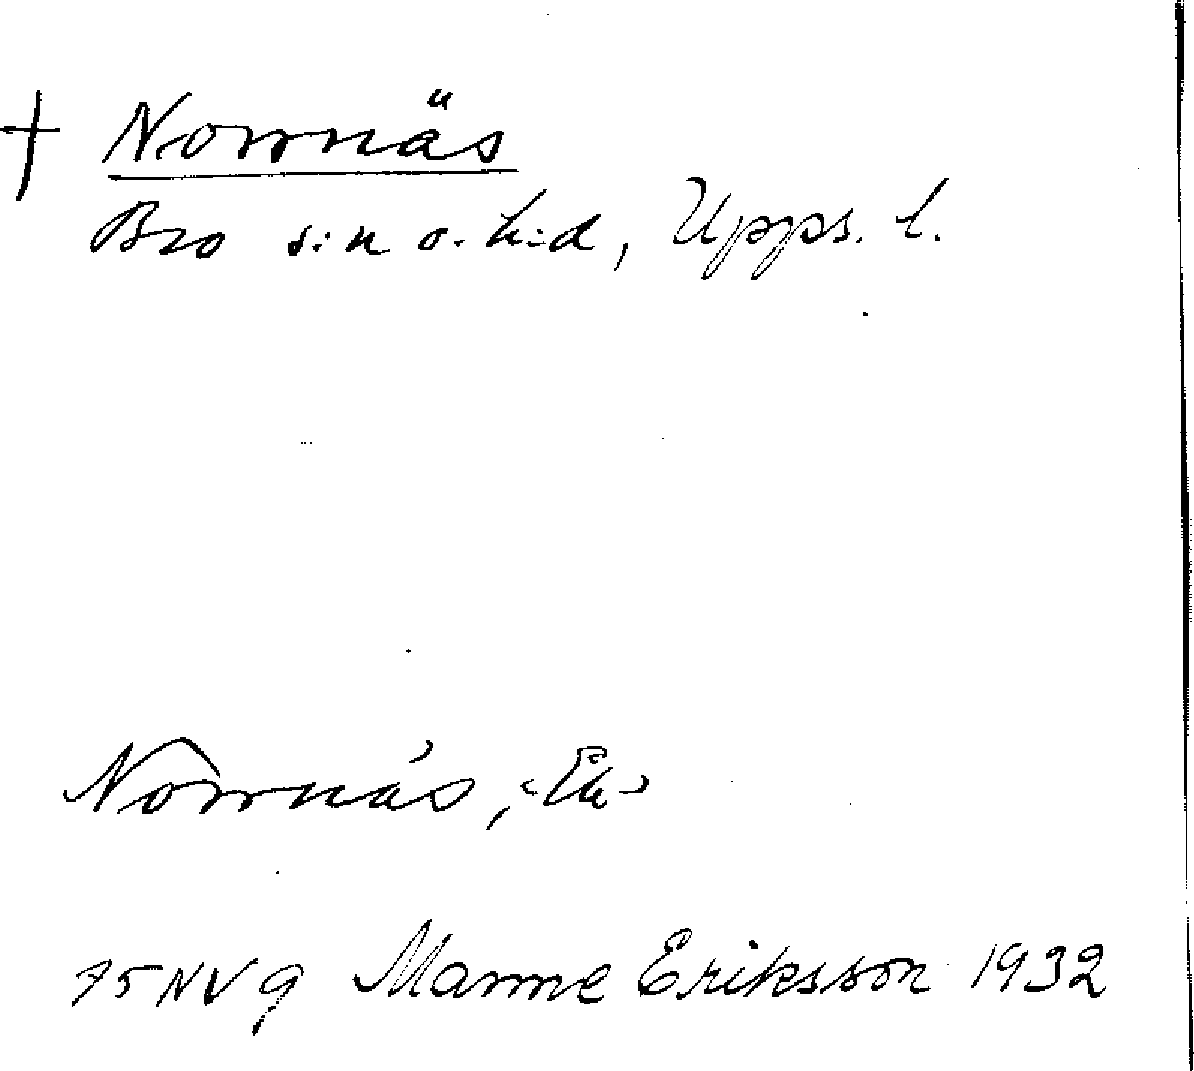 † Norrnäs
Bro s:n o. h:d, Upps. l.
Norrnäs,
75 NV g Manne Eriksson 1932